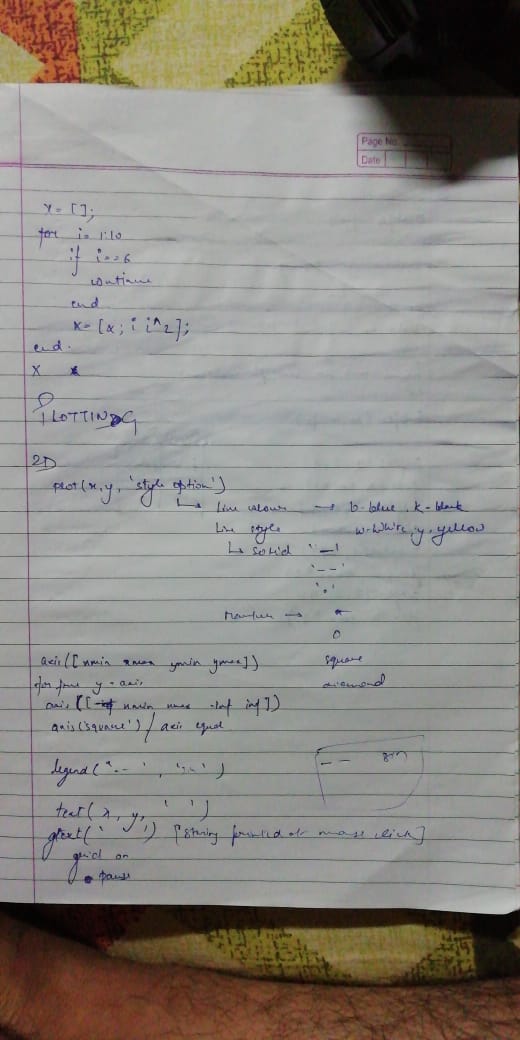 Page No.
Date
x = [];
for i = 1:10
if i == 6
continue
end
x = [x; i i^2];
end.
x
PLOTTING
2D
plot(x, y, 'style option')
↳ Line colour → b-blue, k-black
Line style w-white, y-yellow
↳ solid '—'
'--'
':'
Marker → *
o
axis([xmin xmax ymin ymax]) square
for free y-axis diamond
axis([xmin xmax -inf inf])
axis('square') / axis equal
legend('
-- sin
text(x, y, ' ')
gtext(' ') [string printed at mouse click]
grid on
pause